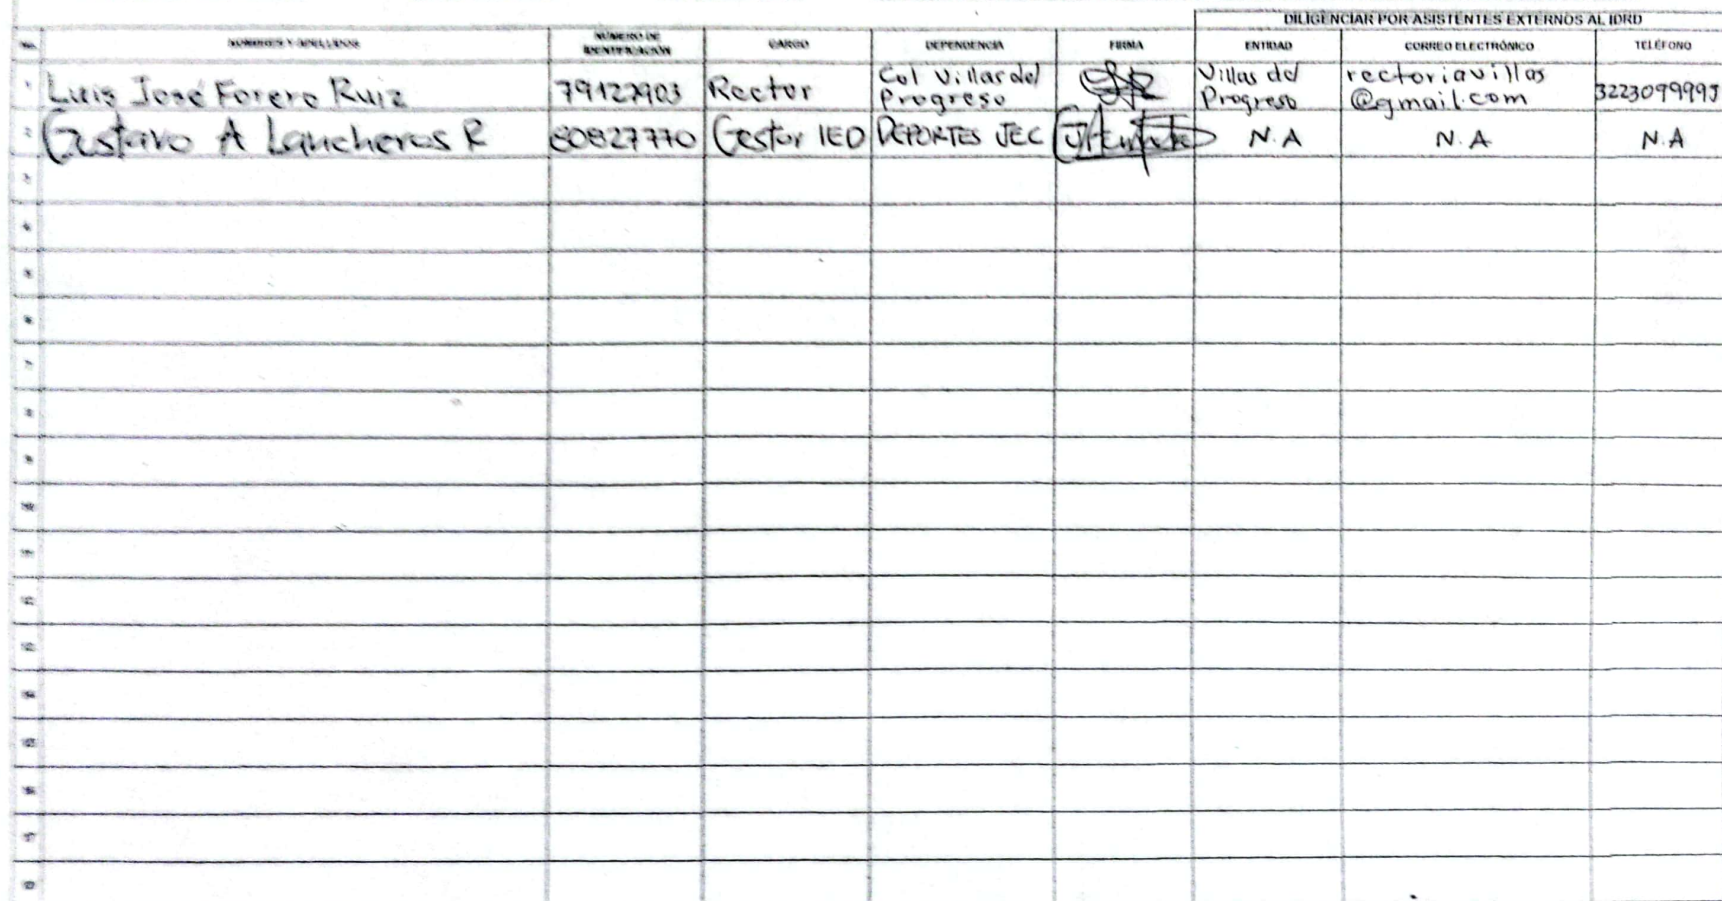 DILIGENCIAR POR ASISTENTES EXTERNOS AL IDRD
No. NOMBRES Y APELLIDOS NÚMERO DE IDENTIFICACIÓN CARGO DEPENDENCIA FIRMA ENTIDAD CORREO ELECTRÓNICO TELÉFONO
1 Luis José Forero Ruiz 79127903 Rector Col Villas del Progreso Villas del Progreso rectoriavillas @gmail.com 3223099995
2 Gustavo A Lancheros R 80827770 Gestor IED DEPORTES JEC N.A N.A N.A
3
4
5
6
7
8
9
10
11
12
13
14
15
16
17
18